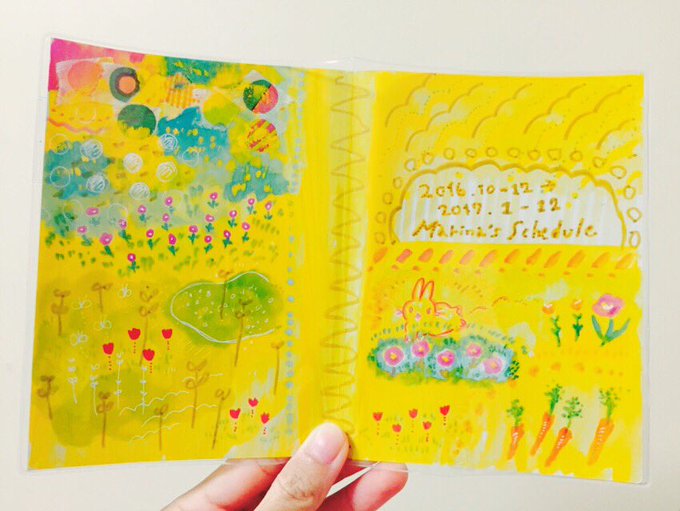 2016.10-12→
2017.1-12
Marina's Schedule